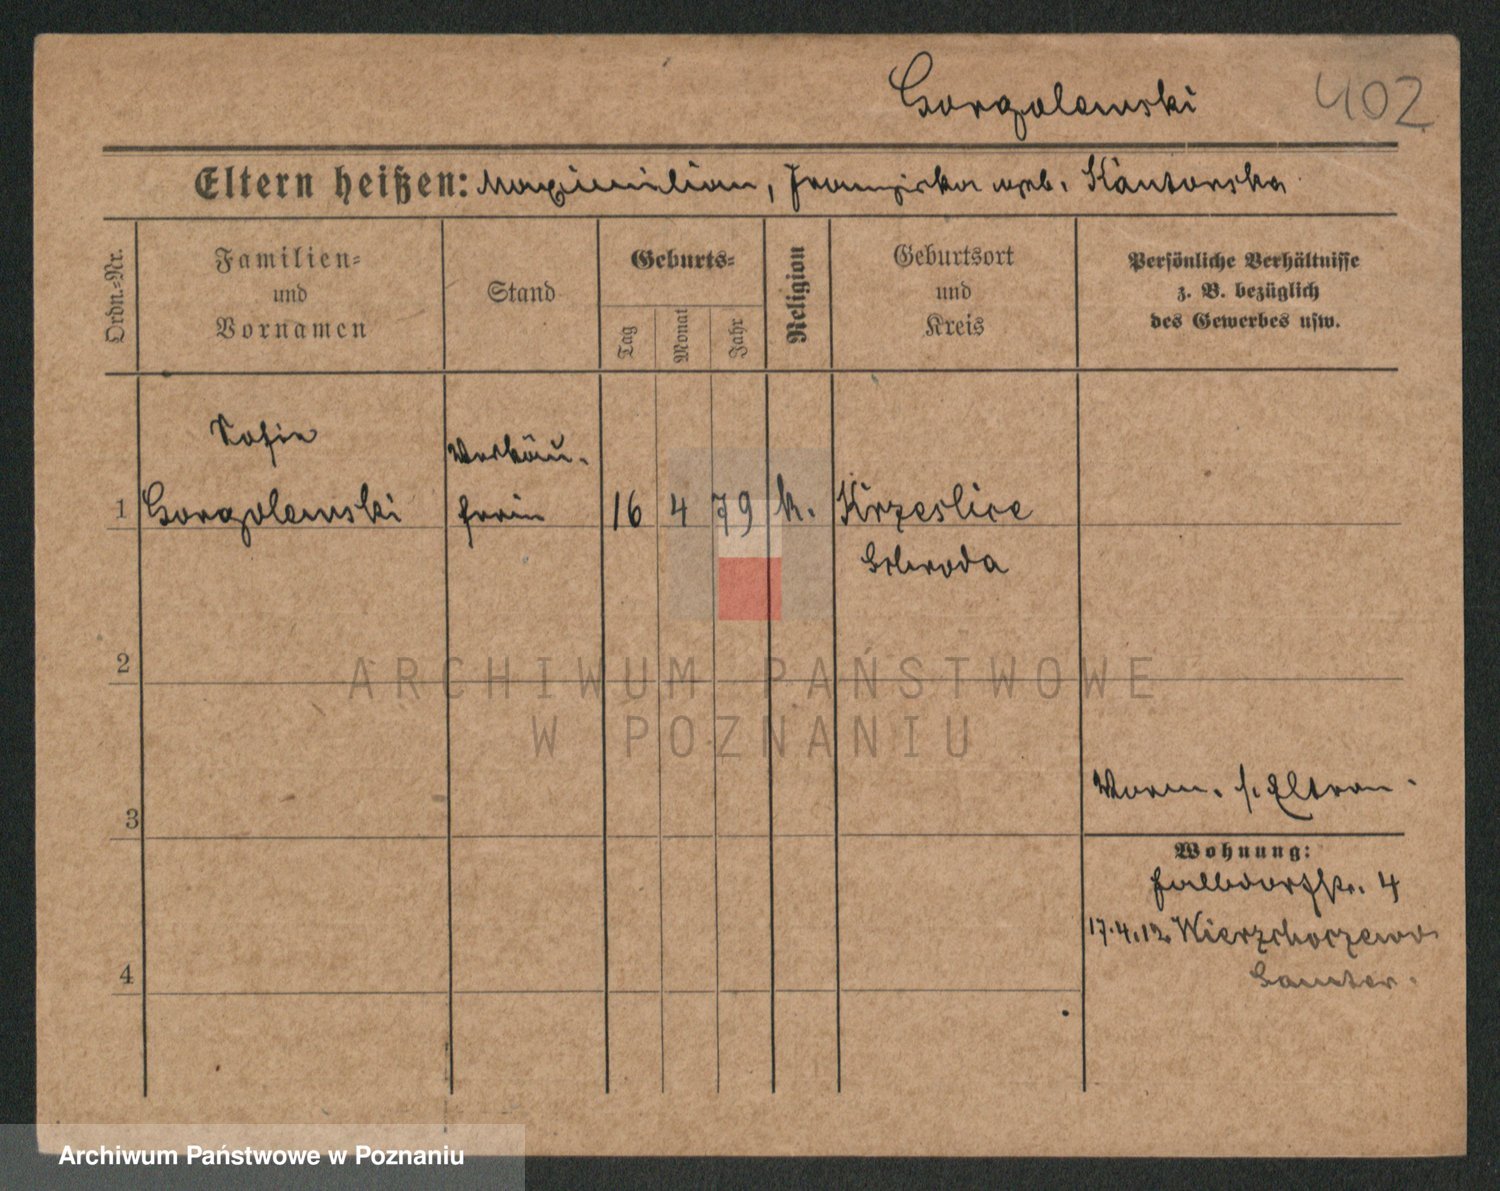 Gorgolewski 402
Eltern heißen: Maximilian, Franziska geb. Kantorska
Ordn.-Nr.
Familien-
und
Vornamen
Stand
Geburts-
Tag
Monat
Jahr
Religion
Geburtsort
und
Kreis
Persönliche Verhältnisse
z. B. bezüglich
des Gewerbes usw.
Sofie
Verkäu-
1 Gorgolewski ferin 16 4 79 k. Krzeslice
Schroda
2
ARCHIWUM PAŃSTWOWE
W POZNANIU
Vorm. s. Eltern.
3
Wohnung:
Halbdorfstr. 4
17.4.12 Wierzchoczewo
4
Samter.
Archiwum Państwowe w Poznaniu